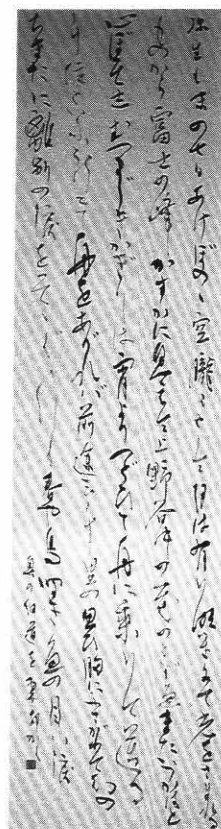 弥生も末の七日あけぼのゝ空朧々として月は有明にて光をさまれる
ものから富士の峰かすかに見えて上野谷中の花のこずゑまたいつかはと
心ぼそしむつまじきかぎりは宵よりつどひて舟に乗りて送る
千住といふ所にて舟をあがれば前途三千里の思ひ胸にふさがりて幻の
ちまたに離別の涙をそゝぐ行く春や鳥啼き魚の目は涙
奥の細道を